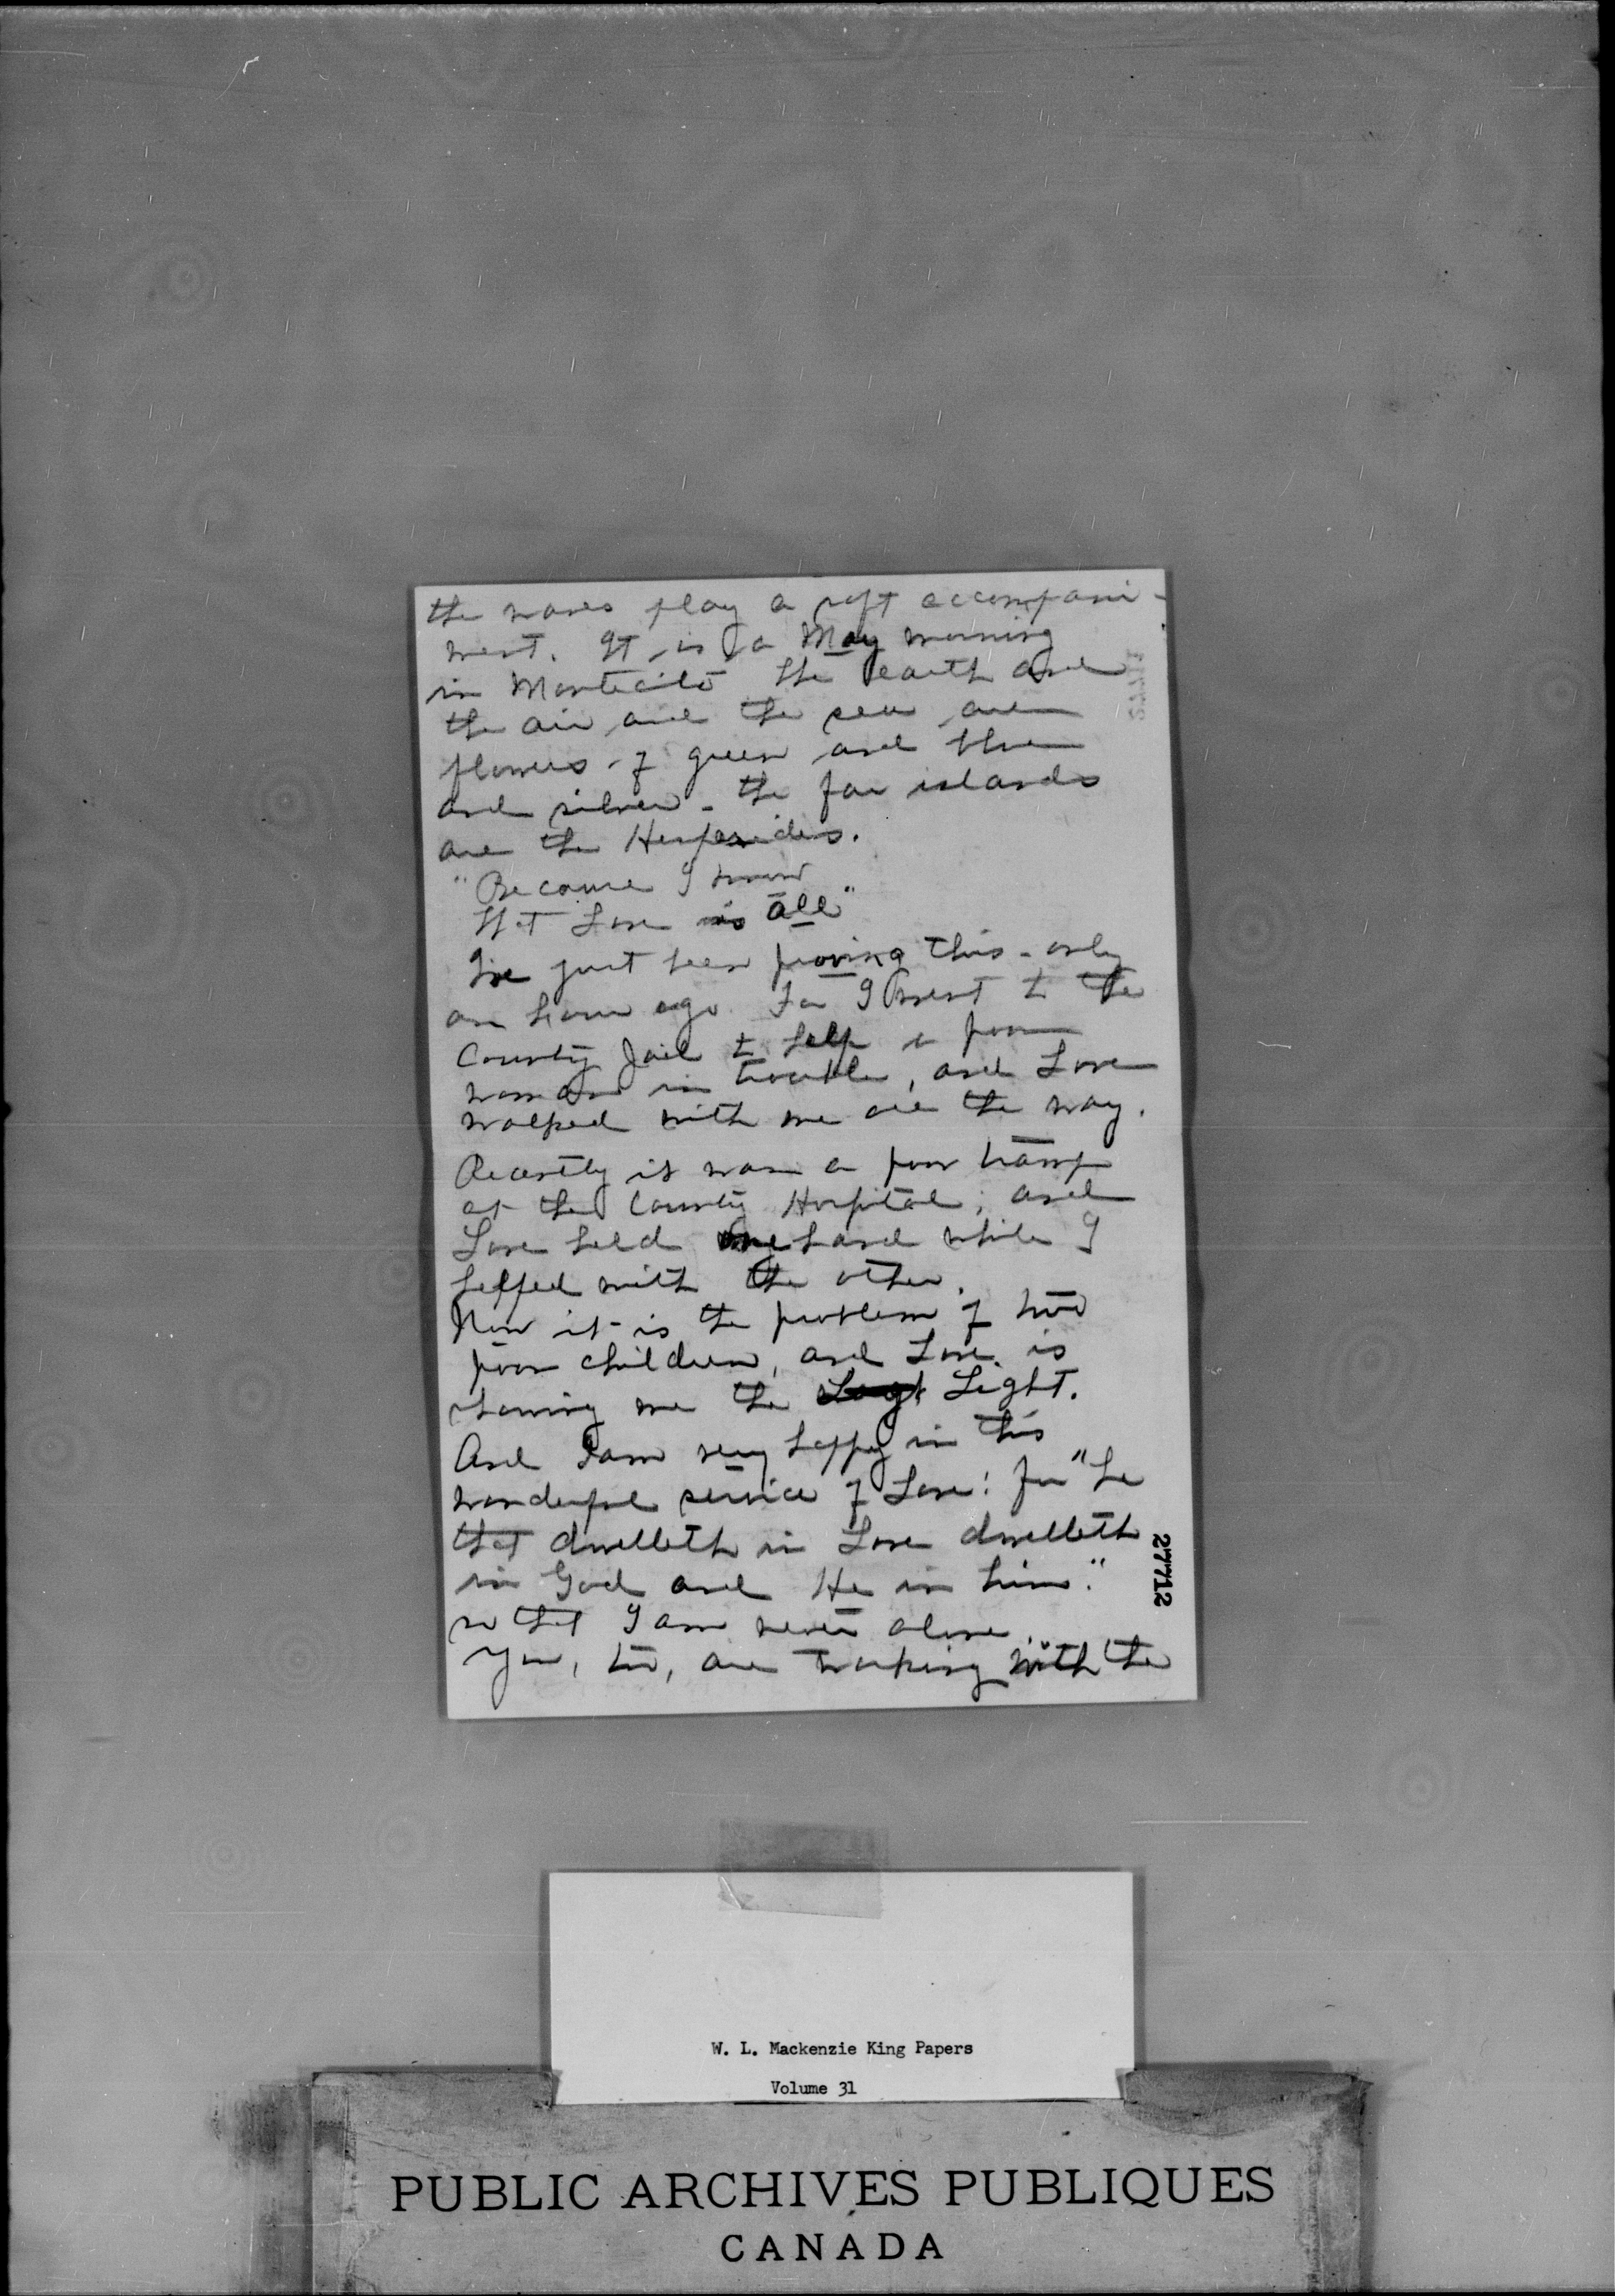 the waves play a soft accompani-
ment. It is a May morning
in Montecito the earth and
the air and the sea are
flowers of green and blue
and silver - the far islands
are the Hesperides.
"Because I know
that Love is all"
I've just been proving this - only
an hour ago. For I went to the
County Jail to help a poor
woman in trouble, and Love
walked with me all the way.
Recently it was a poor tramp
at the County Hospital; and
Love held one hand while I
helped with the other.
Now it is the problem of two
poor children, and Love is
showing me the Light.
And I am very happy in this
wonderful service of Love! for "he
that dwelleth in Love dwelleth
in God and He in him."
so that I am never alone.
You, too, are working with the
27712
W. L. Mackenzie King Papers
Volume 31
PUBLIC ARCHIVES PUBLIQUES
CANADA